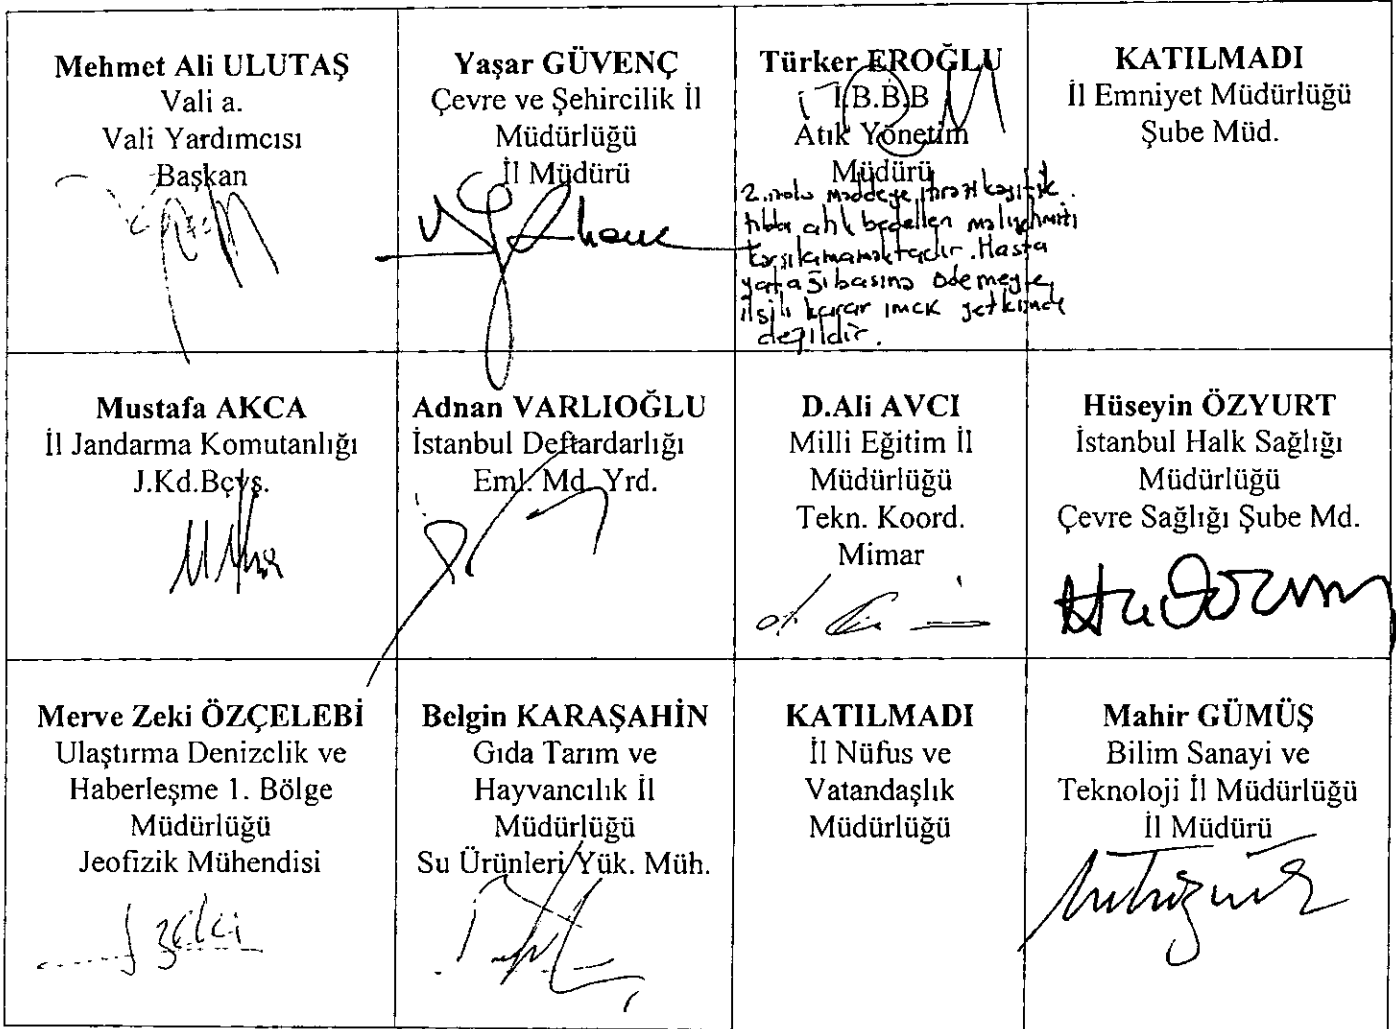 Mehmet Ali ULUTAŞ
Vali a.
Vali Yardımcısı
Başkan
Yaşar GÜVENÇ
Çevre ve Şehircilik İl
Müdürlüğü
İl Müdürü
Türker EROĞLU
İ.B.B.B
Atık Yönetim
Müdürü
2. nolu maddeye
tıbbi atık bedelleri maliyetini
karşılamamaktadır. Hasta
yatağı basına ödemeyle
ilgili karar yetkisinde
değildir.
KATILMADI
İl Emniyet Müdürlüğü
Şube Müd.
Mustafa AKCA
İl Jandarma Komutanlığı
J.Kd.Bçvş.
Adnan VARLIOĞLU
İstanbul Deftardarlığı
Eml. Md. Yrd.
D.Ali AVCI
Milli Eğitim İl
Müdürlüğü
Tekn. Koord.
Mimar
Hüseyin ÖZYURT
İstanbul Halk Sağlığı
Müdürlüğü
Çevre Sağlığı Şube Md.
Merve Zeki ÖZÇELEBİ
Ulaştırma Denizclik ve
Haberleşme 1. Bölge
Müdürlüğü
Jeofizik Mühendisi
Belgin KARAŞAHİN
Gıda Tarım ve
Hayvancılık İl
Müdürlüğü
Su Ürünleri Yük. Müh.
KATILMADI
İl Nüfus ve
Vatandaşlık
Müdürlüğü
Mahir GÜMÜŞ
Bilim Sanayi ve
Teknoloji İl Müdürlüğü
İl Müdürü